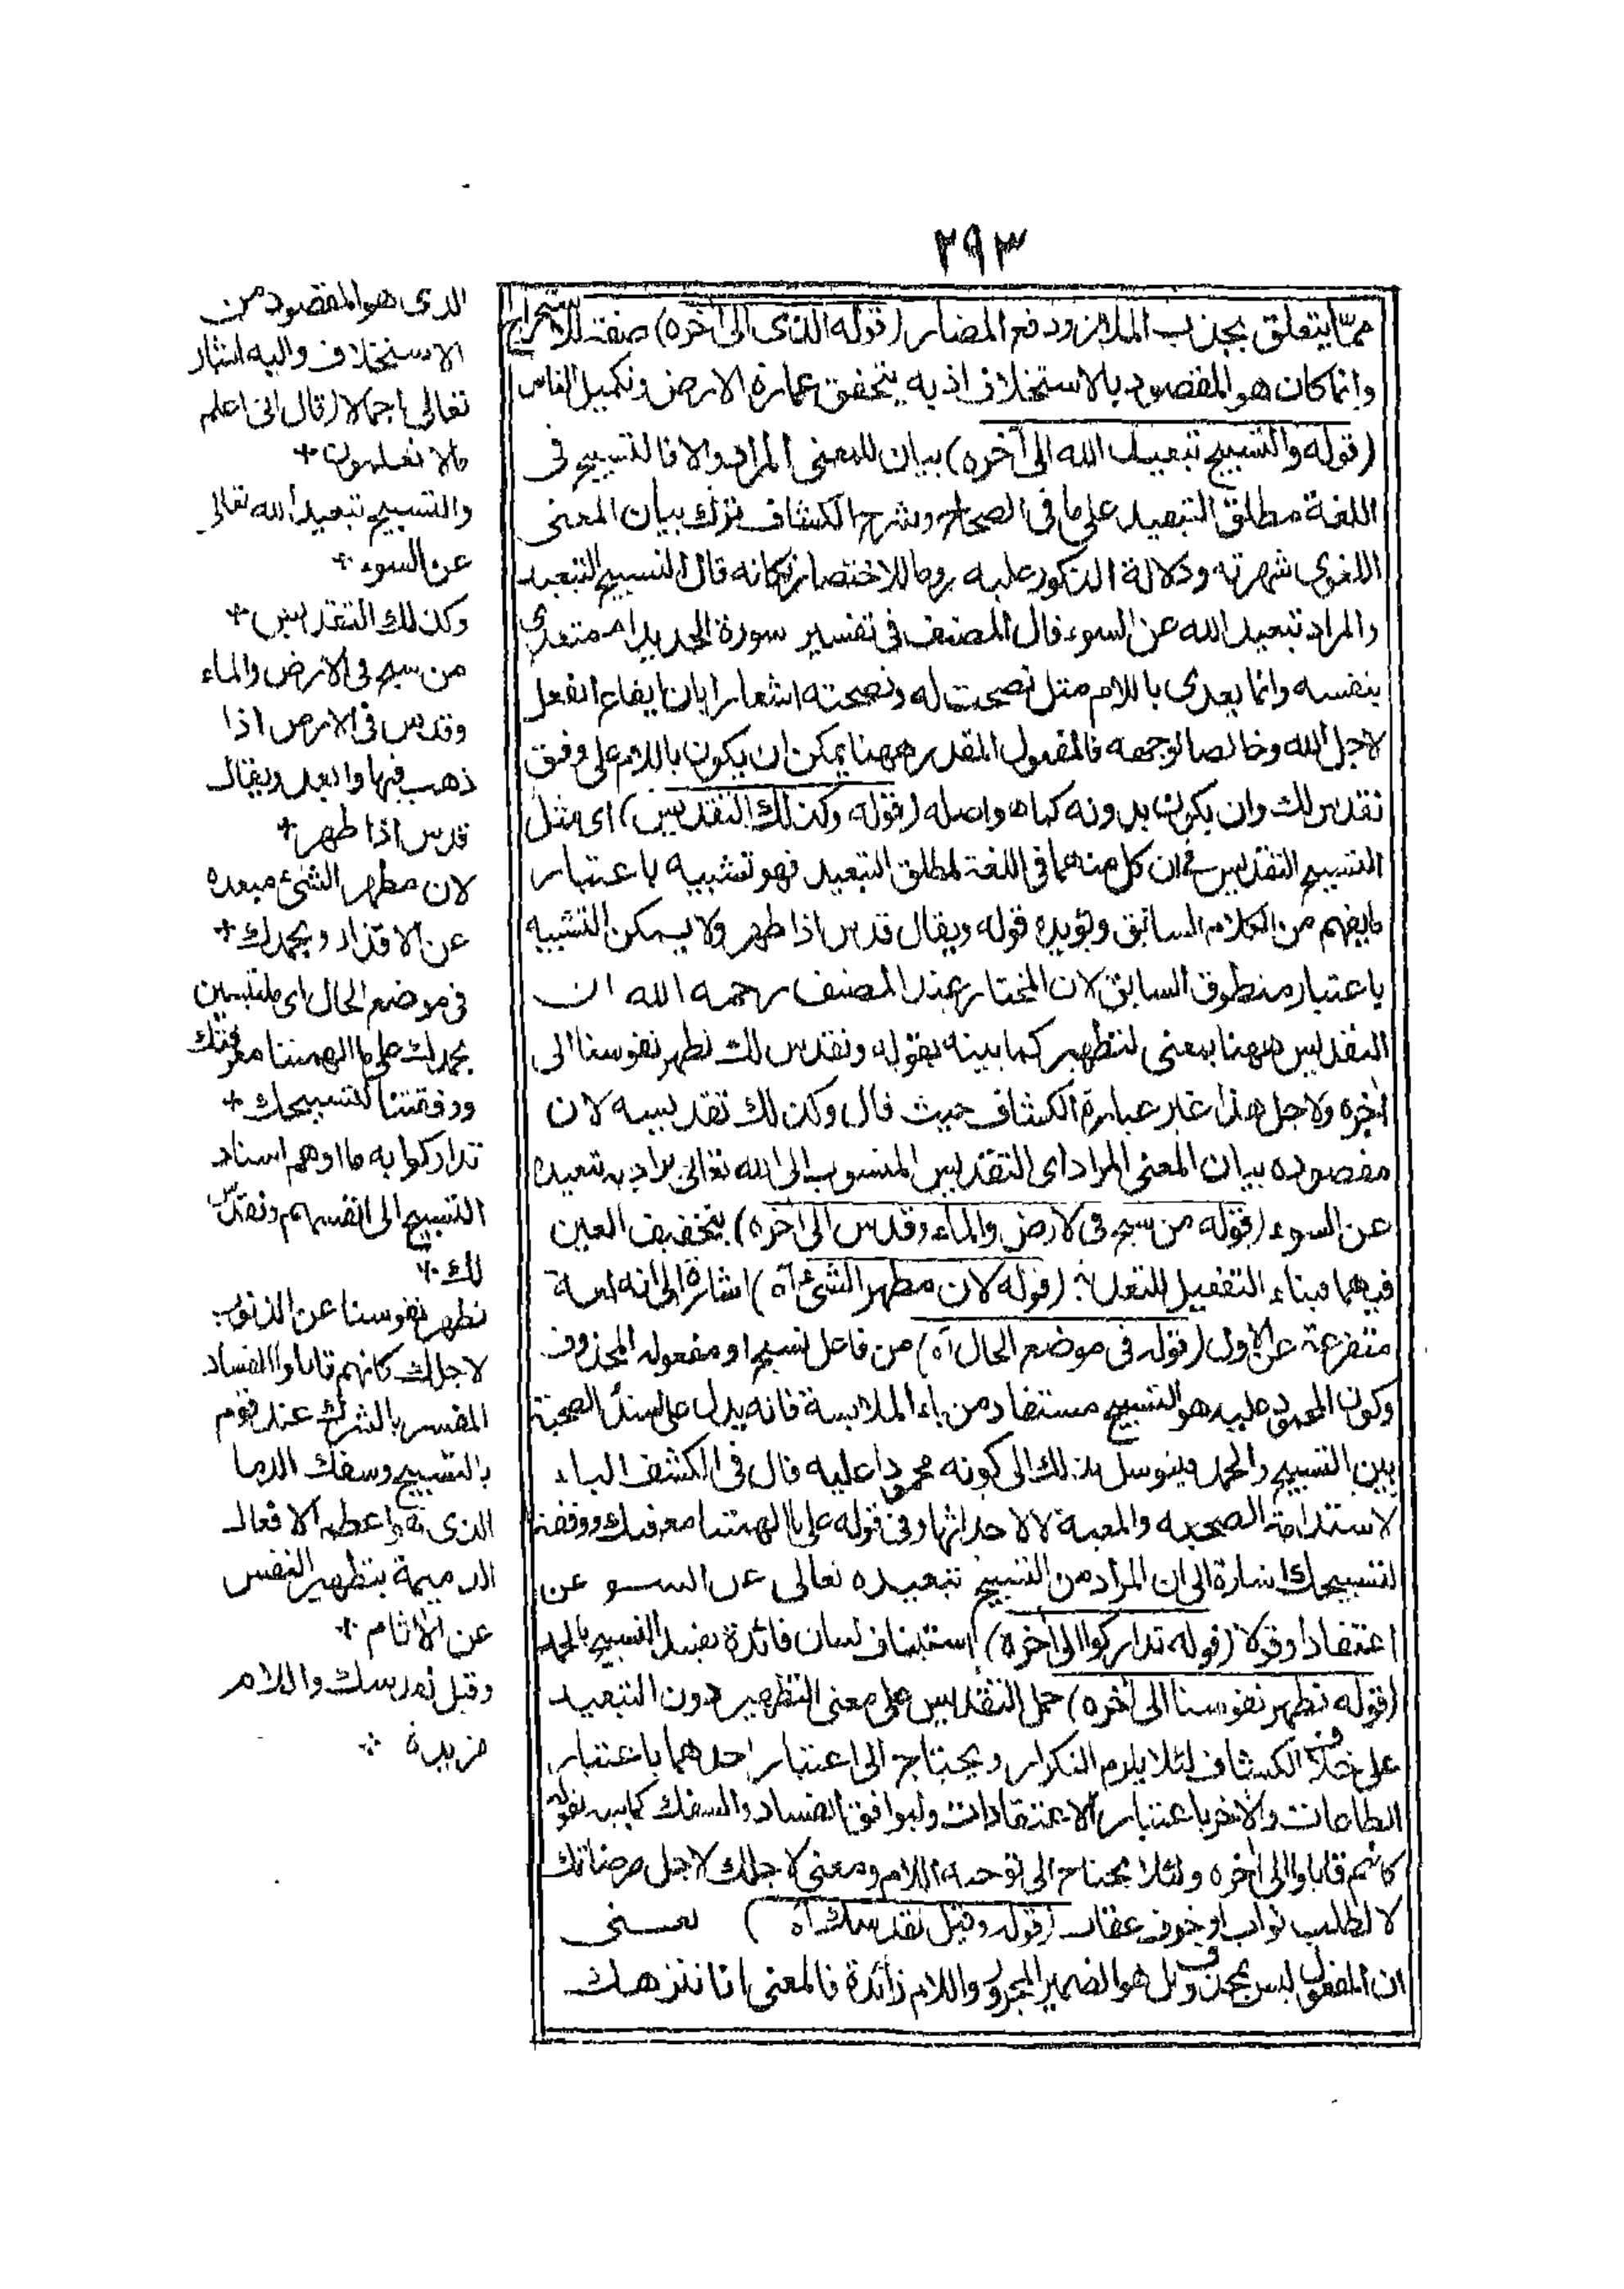 ٢٩٣
مما يتعلق بجذب الملائم ودفع المضار (قوله الذى الى آخره) صفة للاستخراج
وانما كان هو المقصود بالاستخلاف اذ به يتحقق عمارة الارض وتكميل الناس
(قوله والتسبيح تبعيد الله الى آخره) بيان للمعنى المراد والا فالتسبيح فى
اللغة مطلق التبعيد على ما فى الصحاح وشرح الكشاف ترك بيان المعنى
اللغوى لشهرته ودلالة المذكور عليه روما للاختصار فكانه قال التسبيح التبعيد
والمراد تبعيد الله عن السوء قال المصنف فى تفسير سورة الحديد انه متعدى
بنفسه وانما يعدى باللام مثل نصحت له ونصحته اشعارا بان ايقاع الفعل
لاجل الله وخالصا لوجهه فالمفعول المقدر ههنا يمكن ان يكون باللام على وفق
نقدس لك وان يكون بدونه كما هو اصله (قوله وكذلك التقديس) اى مثل
التسبيح التقديس فى ان كل منهما فى اللغة لمطلق التبعيد فهو تشبيه باعتبار
ما يفهم من الكلام السابق ويؤيده قوله ويقال قدس اذا طهر ولا يمكن التشبيه
باعتبار منطوق السابق لان المختار عند المصنف رحمه الله ان
التقديس ههنا بمعنى لتطهير كما بينه بقوله ونقدس لك نطهر نفوسنا الى
آخره ولاجل هذا غير عبارة الكشاف حيث قال وكذلك تقديسه لان
مقصوده بيان المعنى المراد اى التقديس المنسوب الى الله تعالى يراد به تبعيده
عن السوء (قوله من سبح فى الارض والماء وقدس الى آخره) بتخفيف العين
فيهما فبناء التفعيل للتعدية (قوله لان مطهر الشئ آه) اشارة الى انه
متفرعة عن الاول (قوله فى موضع الحال آه) من فاعل نسبح او مفعوله المحذوف
وكون المحمود عليه هو التسبيح مستفاد من باء الملابسة فانه يدل على الصحبة
بين التسبيح والحمد فيتوسل بذلك الى كونه محمودا عليه قال فى الكشف الباء
لاستدامة الصحبة والمعية لا لاحداثها وفى قوله على ما الهمتنا معرفتك ووفقتنا
لتسبيحك اشارة الى ان المراد من التسبيح تبعيده تعالى عن السوء عن
اعتقادا وقولا (قوله تداركوا الى آخره) استيناف لبيان فائدة تقييد التسبيح بالحمد
(قوله نطهر نفوسنا الى آخره) حمل التقديس على معنى التطهير دون التبعيد
على خلاف الكشاف لئلا يلزم التكرار ويحتاج الى اعتبار احدهما باعتبار
الطاعات والآخر باعتبار الاعتقادات وليوافق الفساد والسفك كما بينه بقوله
كانهم قابلوا الى آخره ولئلا يحتاج الى توجيه اللام ومعنى لاجلك لاجل مرضاتك
لا لطلب ثواب او خوف عقاب (قوله وقيل نقدسك آه) يعنى
ان المفعول ليس بمحذوف بل هو الضمير المجرور واللام زائدة فالمعنى انا ننزهك
الذى هو المقصود من
الاستخلاف واليه اشار
تعالى اجمالا (قال انى اعلم
مالا تعلمون +
والتسبيح تبعيد الله تعالى
عن السوء +
وكذلك التقديس +
من سبح فى الارض والماء
وقدس فى الارض اذا
ذهب فيها وابعد ويقال
قدس اذا طهر +
لان مطهر الشئ مبعده
عن الاقذار وبحمدك +
فى موضع الحال اى ملتبسين
بحمدك على ما الهمتنا معرفتك
ووفقتنا لتسبيحك +
تداركوا به ما اوهم اسناد
التسبيح الى انفسهم ونقدس
لك +
نطهر نفوسنا عن الذنوب
لاجلك كانهم قابلوا الفساد
المفسر بالشرك عند قوم
بالتسبيح وسفك الدما
الذى هو اعظم الافعال
الذميمة بتطهير النفس
عن الاثام +
وقيل نقدسك واللام
مزيدة +